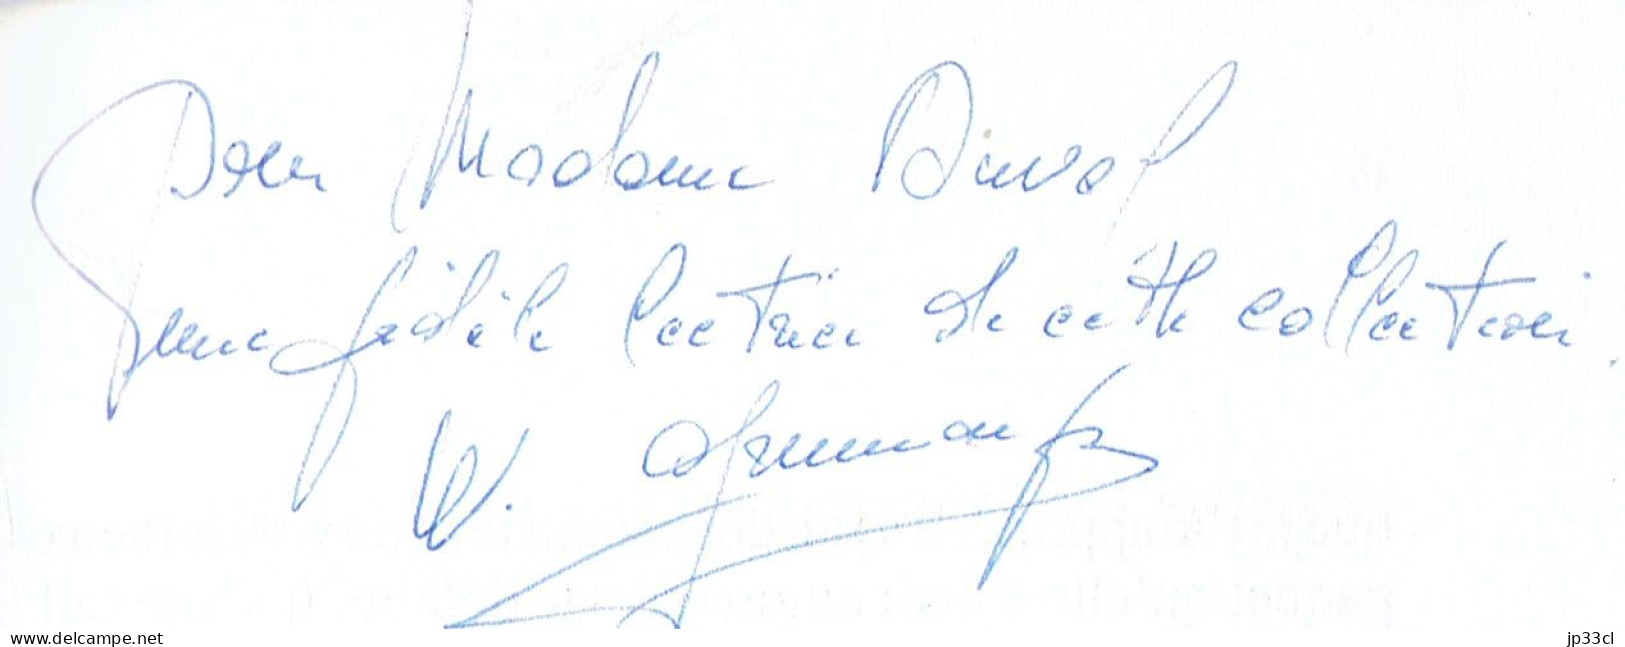 Pour Madame Duval
une fidèle lectrice de cette collection.
W.
www.delcampe.net
jp33cl